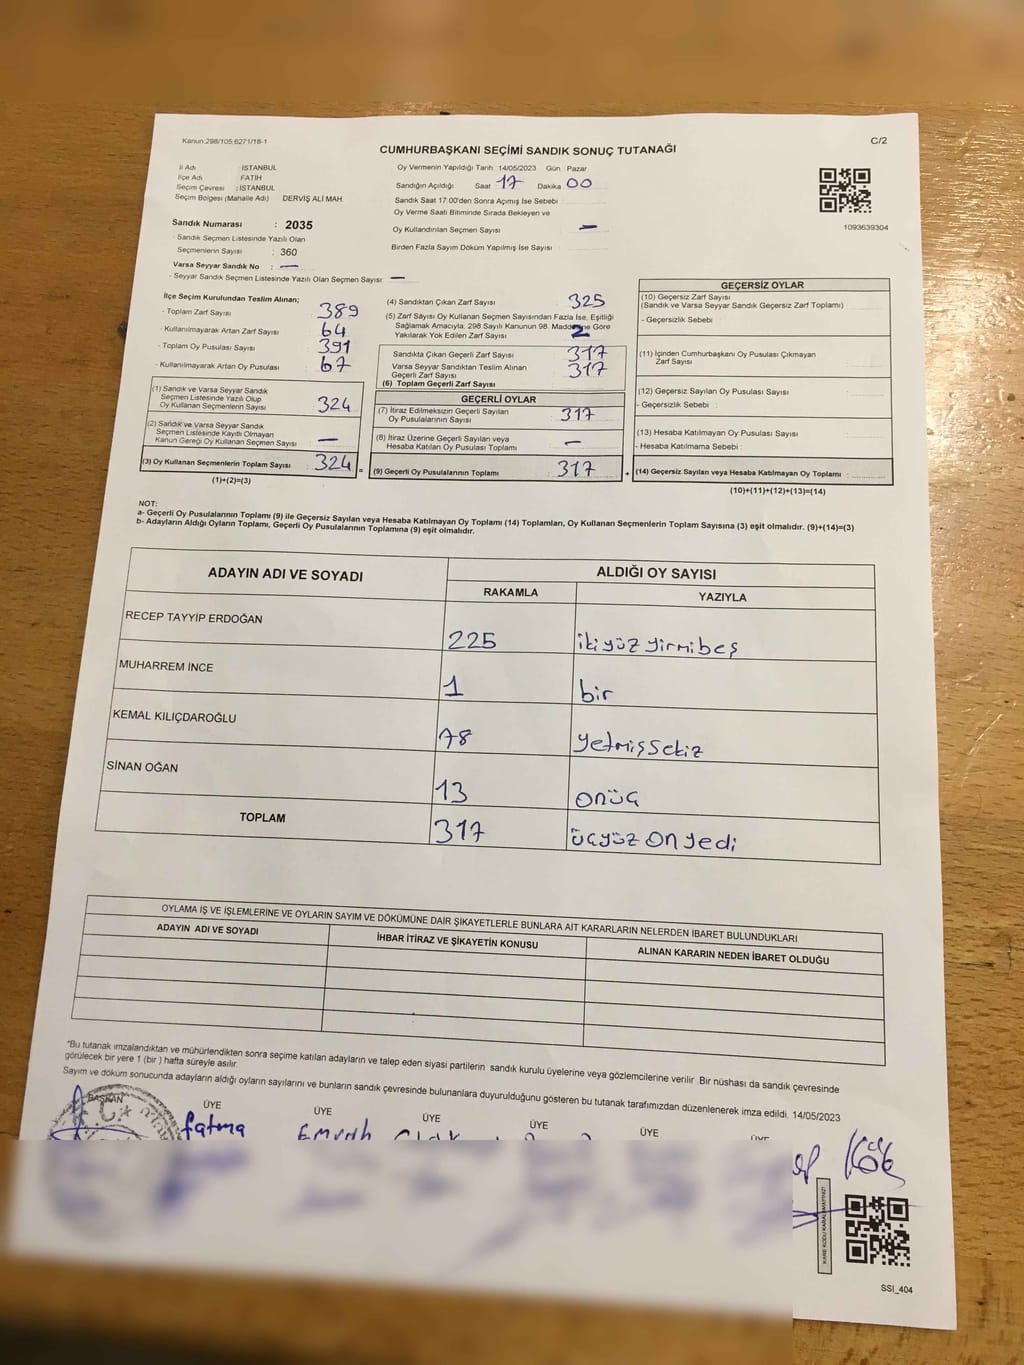 Kanun:298/105;6271/18-1
C/2
CUMHURBAŞKANI SEÇİMİ SANDIK SONUÇ TUTANAĞI
İl Adı : İSTANBUL
İlçe Adı : FATİH
Seçim Çevresi : İSTANBUL
Seçim Bölgesi (Mahalle Adı) DERVİŞ ALİ MAH.
Sandık Numarası : 2035
- Sandık Seçmen Listesinde Yazılı Olan
Seçmenlerin Sayısı : 360
Varsa Seyyar Sandık No : —
- Seyyar Sandık Seçmen Listesinde Yazılı Olan Seçmen Sayısı —
Oy Vermenin Yapıldığı Tarih :14/05/2023 Gün : Pazar
Sandığın Açıldığı Saat 17 Dakika 00
Sandık Saat 17:00'den Sonra Açımış İse Sebebi
Oy Verme Saati Bitiminde Sırada Bekleyen ve
Oy Kullandırılan Seçmen Sayısı —
Birden Fazla Sayım Döküm Yapılmış İse Sayısı
1093639304
İlçe Seçim Kurulundan Teslim Alınan;
- Toplam Zarf Sayısı : 389
- Kullanılmayarak Artan Zarf Sayısı : 64
- Toplam Oy Pusulası Sayısı : 391
- Kullanılmayarak Artan Oy Pusulası : 67
(1) Sandık ve Varsa Seyyar Sandık
Seçmen Listesinde Yazılı Olup
Oy Kullanan Seçmenlerin Sayısı 324
(2) Sandık ve Varsa Seyyar Sandık
Seçmen Listesinde Kayıtlı Olmayan
Kanun Gereği Oy Kullanan Seçmen Sayısı —
(3) Oy Kullanan Seçmenlerin Toplam Sayısı 324 =
(1)+(2)=(3)
(4) Sandıktan Çıkan Zarf Sayısı 325
(5) Zarf Sayısı Oy Kullanan Seçmen Sayısından Fazla İse, Eşitliği
Sağlamak Amacıyla, 298 Sayılı Kanunun 98. Maddesine Göre
Yakılarak Yok Edilen Zarf Sayısı
Sandıkta Çıkan Geçerli Zarf Sayısı 317
Varsa Seyyar Sandıktan Teslim Alınan
Geçerli Zarf Sayısı 317
(6) Toplam Geçerli Zarf Sayısı
GEÇERLİ OYLAR
(7) İtiraz Edilmeksizin Geçerli Sayılan
Oy Pusulalarının Sayısı 317
(8) İtiraz Üzerine Geçerli Sayılan veya
Hesaba Katılan Oy Pusulası Toplamı —
(9) Geçerli Oy Pusulalarının Toplamı 317 +
GEÇERSİZ OYLAR
(10) Geçersiz Zarf Sayısı
(Sandık ve Varsa Seyyar Sandık Geçersiz Zarf Toplamı)
- Geçersizlik Sebebi :
(11) İçinden Cumhurbaşkanı Oy Pusulası Çıkmayan
Zarf Sayısı
(12) Geçersiz Sayılan Oy Pusulası Sayısı
- Geçersizlik Sebebi :
(13) Hesaba Katılmayan Oy Pusulası Sayısı
- Hesaba Katılmama Sebebi :
(14) Geçersiz Sayılan veya Hesaba Katılmayan Oy Toplamı :
(10)+(11)+(12)+(13)=(14)
NOT:
a- Geçerli Oy Pusulalarının Toplamı (9) ile Geçersiz Sayılan veya Hesaba Katılmayan Oy Toplamı (14) Toplamları, Oy Kullanan Seçmenlerin Toplam Sayısına (3) eşit olmalıdır. (9)+(14)=(3)
b- Adayların Aldığı Oyların Toplamı, Geçerli Oy Pusulalarının Toplamına (9) eşit olmalıdır.
ADAYIN ADI VE SOYADI ALDIĞI OY SAYISI
RAKAMLA YAZIYLA
RECEP TAYYİP ERDOĞAN 225 ikiyüz yirmibeş
MUHARREM İNCE 1 bir
KEMAL KILIÇDAROĞLU 78 yetmişsekiz
SİNAN OĞAN 13 onüç
TOPLAM 317 üçyüz on yedi
OYLAMA İŞ VE İŞLEMLERİNE VE OYLARIN SAYIM VE DÖKÜMÜNE DAİR ŞİKAYETLERLE BUNLARA AİT KARARLARIN NELERDEN İBARET BULUNDUKLARI
ADAYIN ADI VE SOYADI İHBAR İTİRAZ VE ŞİKAYETİN KONUSU ALINAN KARARIN NEDEN İBARET OLDUĞU
"Bu tutanak imzalandıktan ve mühürlendikten sonra seçime katılan adayların ve talep eden siyasi partilerin sandık kurulu üyelerine veya gözlemcilerine verilir .Bir nüshası da sandık çevresinde
görülecek bir yere 1 (bir ) hafta süreyle asılır.
Sayım ve döküm sonucunda adayların aldığı oyların sayılarını ve bunların sandık çevresinde bulunanlara duyurulduğunu gösteren bu tutanak tarafımızdan düzenlenerek imza edildi. 14/05/2023
BAŞKAN ÜYE ÜYE ÜYE ÜYE ÜYE ÜYE
Fatma Kök
KARE KODU KARALAMAYINIZ!
SSI_404